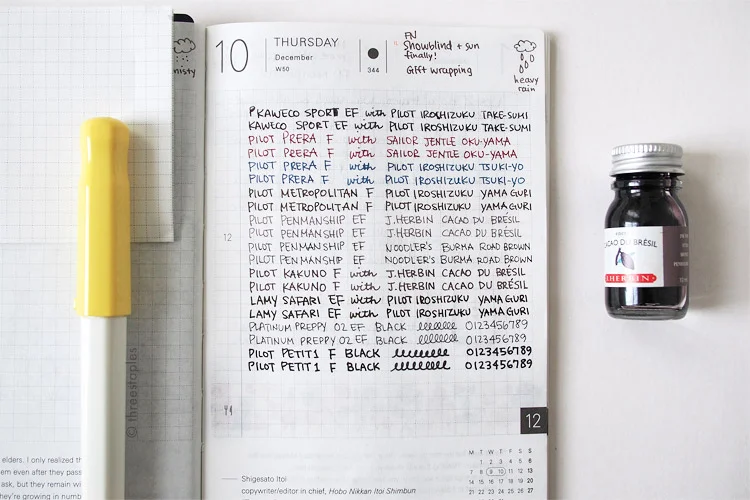 misty
10
THURSDAY
December
W50
344
FN
Showblind + sun
finally!
Gift wrapping
heavy
rain
KAWECO SPORT EF with PILOT IROSHIZUKU TAKE-SUMI
KAWECO SPORT EF with PILOT IROSHIZUKU TAKE-SUMI
PILOT PRERA F with SAILOR JENTLE OKU-YAMA
PILOT PRERA F with SAILOR JENTLE OKU-YAMA
PILOT PRERA F with PILOT IROSHIZUKU TSUKI-YO
PILOT PRERA F with PILOT IROSHIZUKU TSUKI-YO
PILOT METROPOLITAN F PILOT IROSHIZUKU YAMA GURI
PILOT METROPOLITAN F PILOT IROSHIZUKU YAMA GURI
PILOT PENMANSHIP EF J.HERBIN CACAO DU BRÉSIL
PILOT PENMANSHIP EF J.HERBIN CACAO DU BRÉSIL
PILOT PENMANSHIP EF NOODLER'S BURMA ROAD BROWN
PILOT PENMANSHIP EF NOODLER'S BURMA ROAD BROWN
PILOT KAKUNO F with J.HERBIN CACAO DU BRÉSIL
PILOT KAKUNO F with J.HERBIN CACAO DU BRÉSIL
LAMY SAFARI EF with PILOT IROSHIZUKU YAMA GURI
LAMY SAFARI EF with PILOT IROSHIZUKU YAMA GURI
PLATINUM PREPPY 02 EF BLACK 0123456789
PLATINUM PREPPY 02 EF BLACK 0123456789
PILOT PETIT1 F BLACK 0123456789
PILOT PETIT1 F BLACK 0123456789
12
12
Shigesato Itoi
copywriter/editor in chief, Hobo Nikkan Itoi Shimbun
M T W T F S S
1 2 3 4 5 6
7 8 9 10 11 12 13
14 15 16 17 18 19 20
21 22 23 24 25 26 27
elders. I only realized th
em even after they pass
ask, but they remain wi
they're growing in numb
© threestaples
CACAO DU BRÉSIL
J.HERBIN